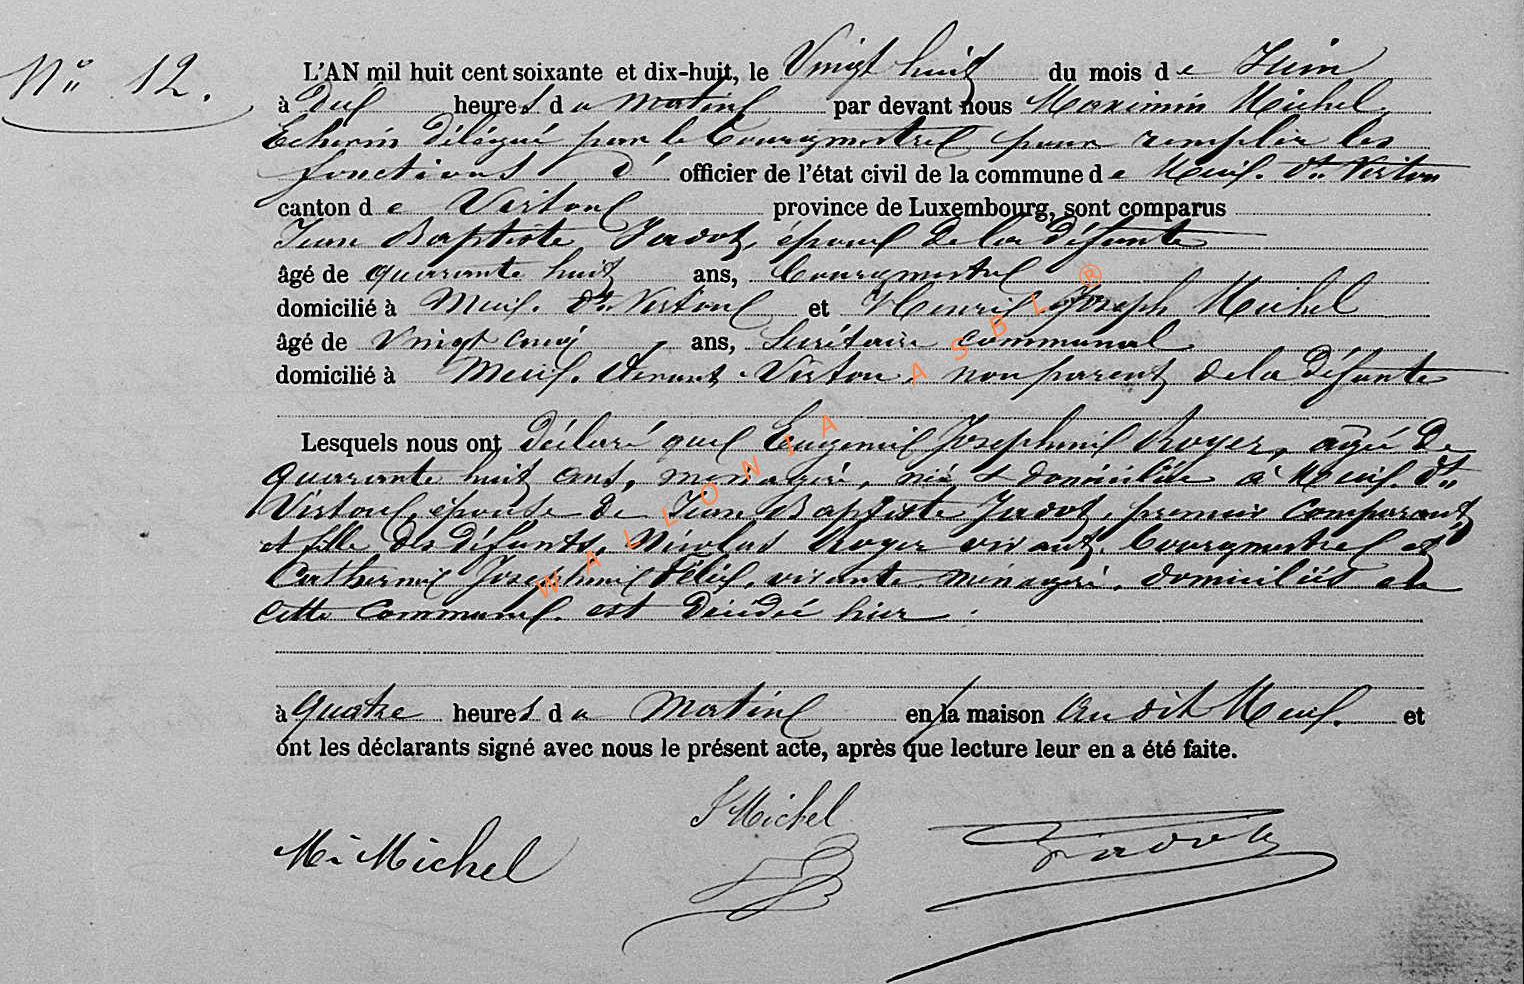 N° 12.
L'AN mil huit cent soixante et dix-huit, le Vingt huit du mois de Juin
à Dix heures du matin par devant nous Maximin Michel.
Echevin délégué par le bourgmestre pour remplir les
fonctions d' officier de l'état civil de la commune de Meix. dt Virton
canton de Virton province de Luxembourg, sont comparus
Jean Baptiste Jadot, époux de la défunte
âgé de quarante huit ans, bourgmestre
domicilié à Meix. dt Virton et Henri Joseph Michel
âgé de Vingt cinq ans, Secrétaire communal
domicilié à Meix. devant Virton, non parent de la défunte
Lesquels nous ont déclaré que Eugenie Josephine Roger, agée de
quarante huit ans, ménagère, née & domiciliée à Meix. dt
Virton, épouse de Jean Baptiste Jadot, premier comparant
et fille des défunts, Nicolas Roger vivant, bourgmestre et
Catherine Josephine Félix, vivante ménagère, domiciliés en
cette commune. est décédée hier
à quatre heures du matin en sa maison audit Meix. et
ont les déclarants signé avec nous le présent acte, après que lecture leur en a été faite.
M. Michel
J Michel
Jadot
WALLONIA ASBL ®